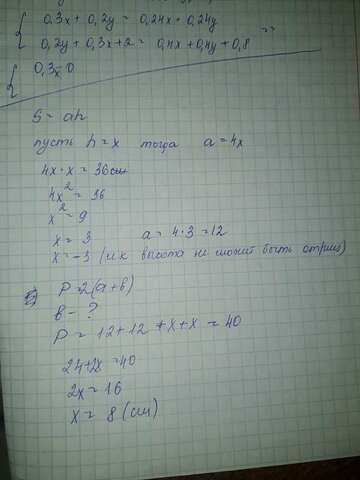 0,3x + 0,2y = 0,24x + 0,24y
0,2y + 0,3x + 2 = 0,4x + 0,4y + 0,8
0,3x 0
S = ah
пусть h = x тогда a = 4x
4x · x = 36
4x² = 36
x² = 9
x = 3 a = 4 · 3 = 12
x = -3 (и к высота не может быть отриц)
P = 2(a+b)
b - ?
P = 12 + 12 + x + x = 40
24 + 2x = 40
2x = 16
x = 8 (см)